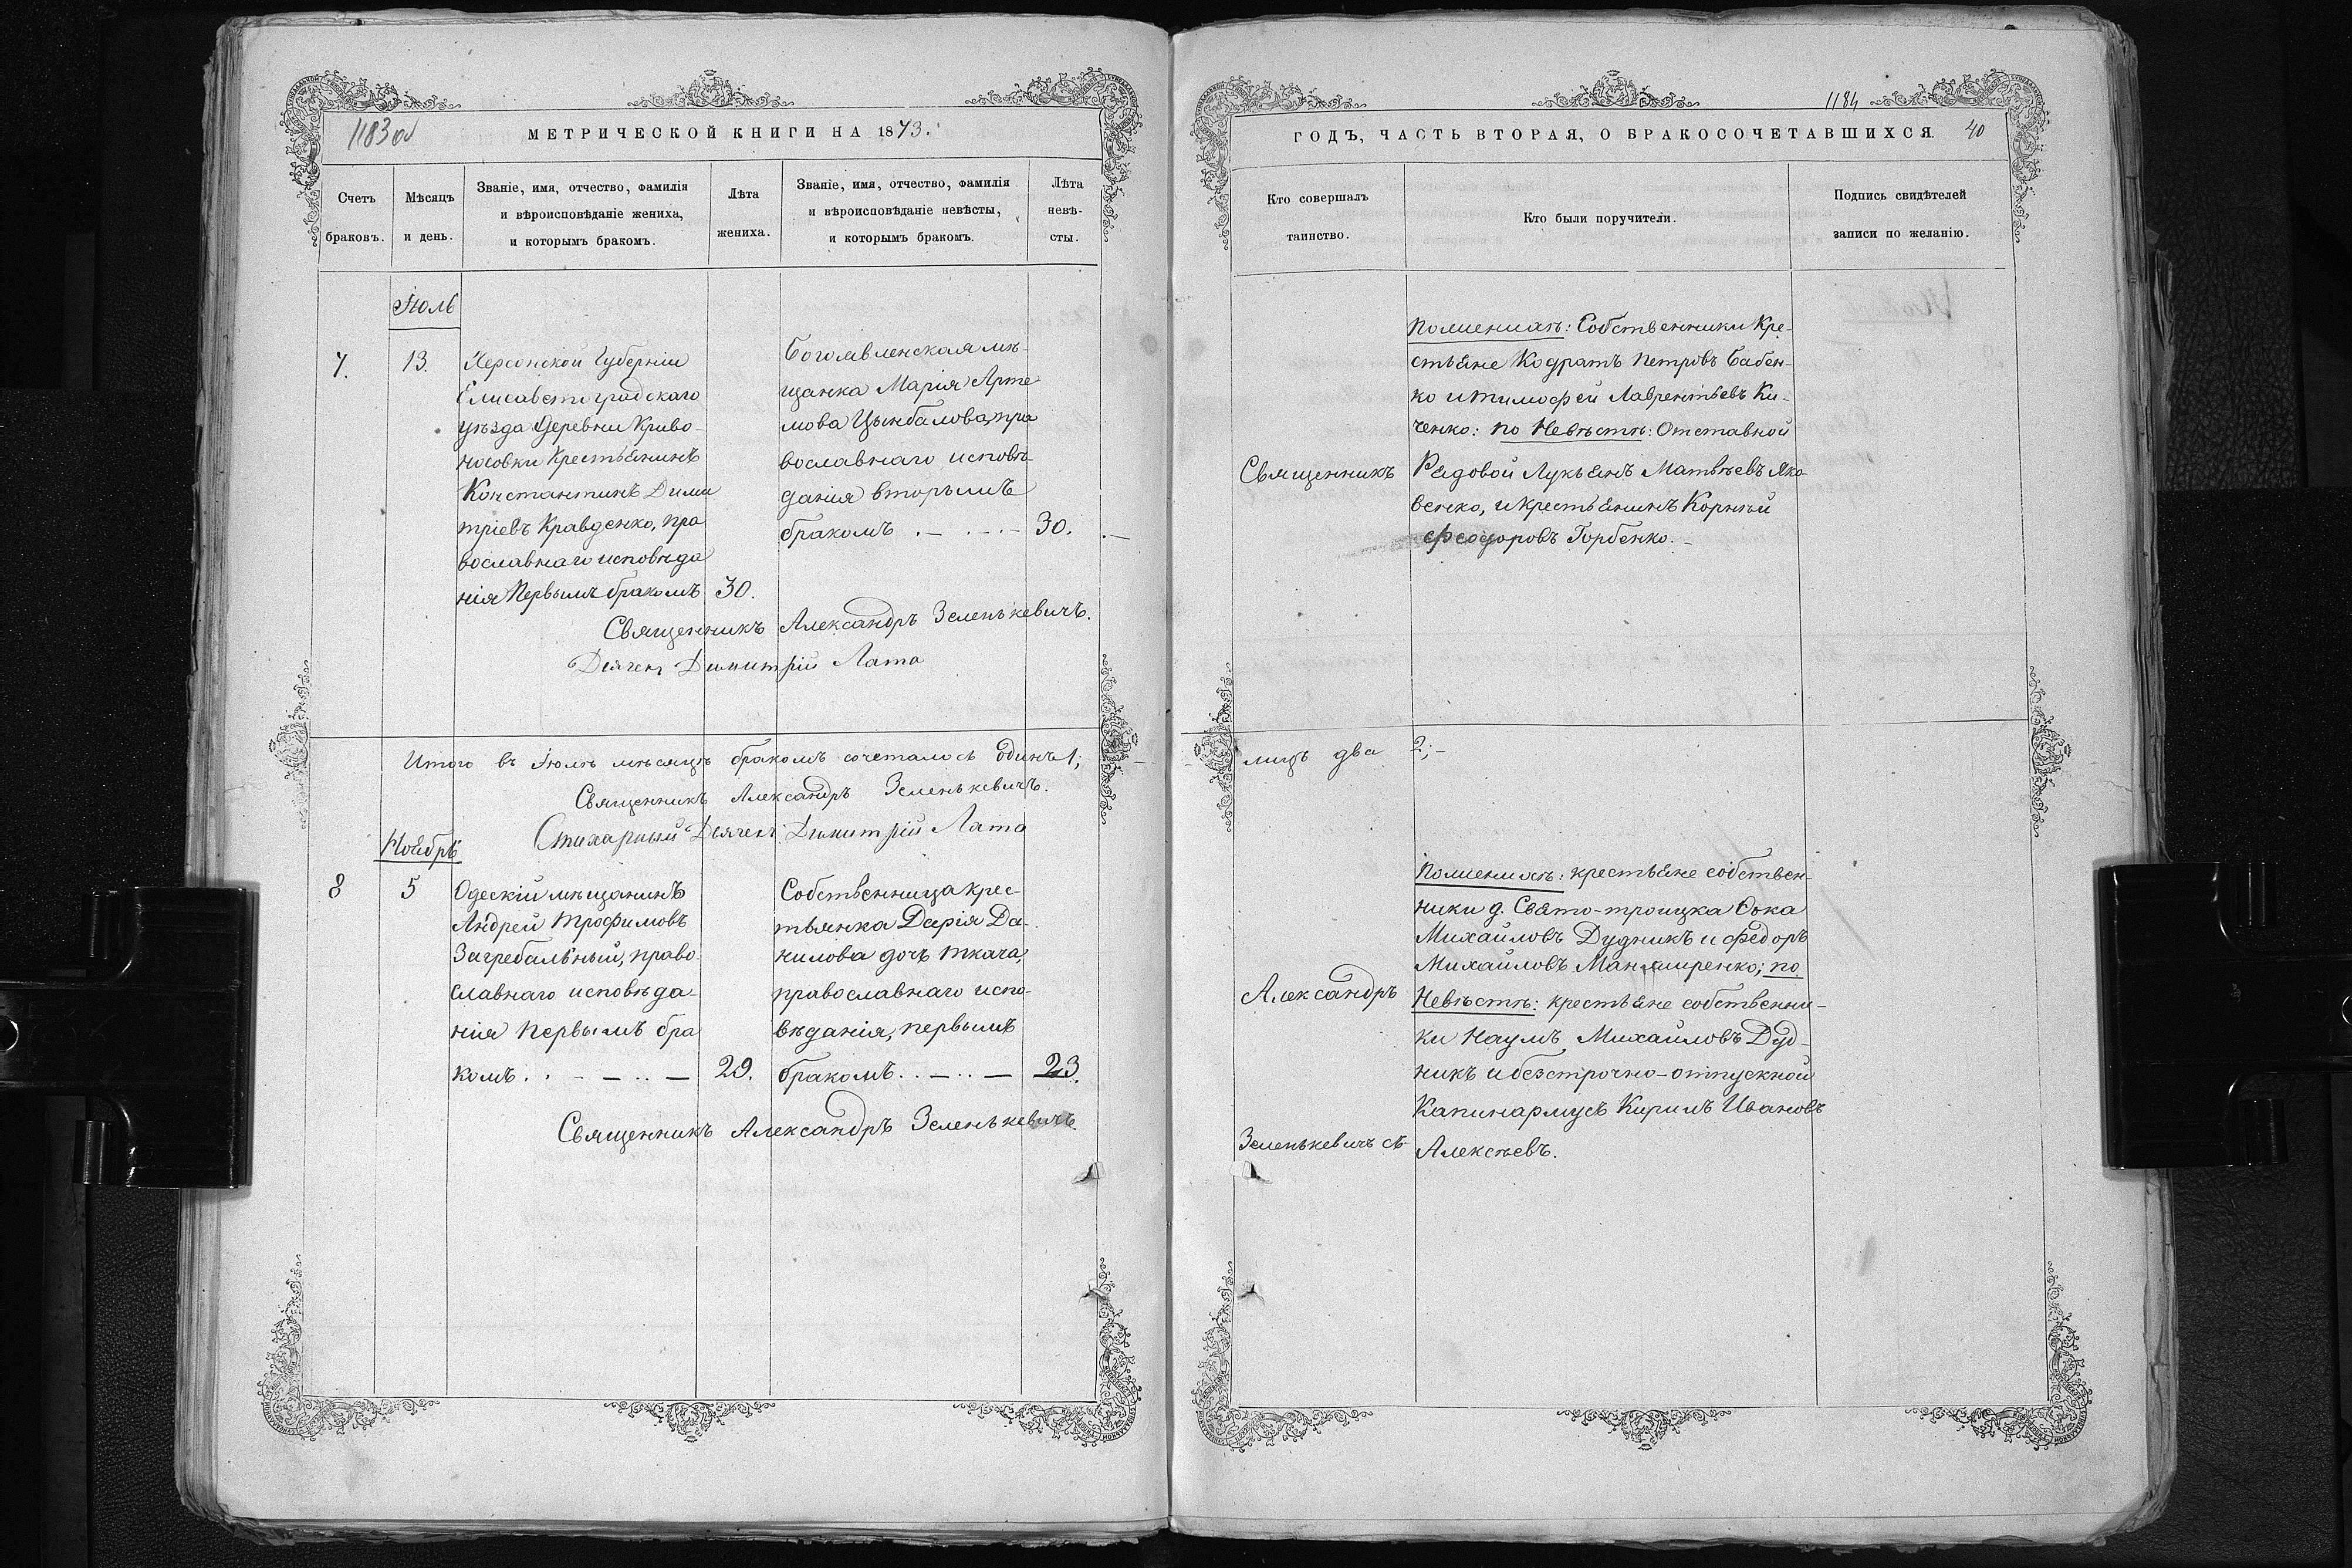 1183 об
МЕТРИЧЕСКОЙ КНИГИ НА 1873.
Счетъ браковъ.
Мѣсяцъ и день.
Званіе, имя, отчество, фамилія
и вѣроисповѣданіе жениха,
и которымъ бракомъ.
Лѣта
жениха.
Званіе, имя, отчество, фамилія
и вѣроисповѣданіе невѣсты,
и которымъ бракомъ.
Лѣта
невѣ-
сты.
Іюль
7. 13.
Херсонской Губерніи
Елисаветградскаго
уѣзда Деревни Криво-
носовки Крестьянинъ
Константинъ Дими
тріевъ Кравденко, пра
вославнаго исповѣда
нія Первымъ бракомъ 30.
Богоявленская мѣ-
щанка Марія Арте
мова Цынбалова, пра
вославнаго исповѣ-
данія вторымъ
бракомъ . – . – . – 30. . –
Священникъ Александръ Зеленькевичъ.
Дьячекъ Димитрій Лата
Итого въ Іюлѣ мѣсяцѣ бракомъ сочеталось одинъ 1;
Священникъ Александръ Зеленькевичъ.
Стихарный Дьячекъ Димитрій Лата
Ноябрь
8 5
Одескій мѣщанинъ
Андрей Трофимовъ
Загребальный, право
славнаго исповѣда-
нія Первымъ бра
комъ. . – – .. – 29.
Собственница крес-
тьянка Дарія Да-
нилова дочь Ткача,
православнаго испо-
вѣданія, первымъ
бракомъ. . – . . – 23.
Священникъ Александръ Зеленькевичъ.
1184
ГОДЪ, ЧАСТЬ ВТОРАЯ, О БРАКОСОЧЕТАВШИХСЯ 40
Кто совершалъ
таинство.
Кто были поручители.
Подпись свидѣтелей
записи по желанію.
По женихѣ: Собственники Кре-
стьяне Кодратъ Петровъ Бабен-
ко и Тимофей Лаврентьевъ Ки-
ченко: по Невѣстѣ: Отставной
Священникъ
Рядовой Лукьянъ Матвѣевъ Яко
венко, и крестьянинъ Корнѣй
Феодоровъ Горбенко. –
лицъ два 2; –
По женихѣ: крестьяне собствен-
ники д. Свято-троицка Фока
Михайловъ Дудникъ и Федоръ
Михайловъ Манжиренко; по
Александръ
Невѣстѣ: крестьяне собственни-
ки Наумъ Михайловъ Дуд-
никъ и безсрочно-отпускной
Капинармусъ Кирилъ Ивановъ
Зеленькевичъ съ
Алексѣевъ.